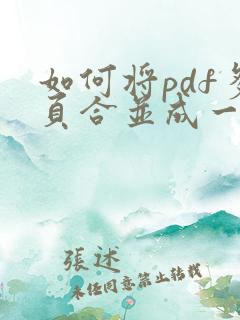 如何将pdf多
页合並成一
張述
未经同意禁止转载